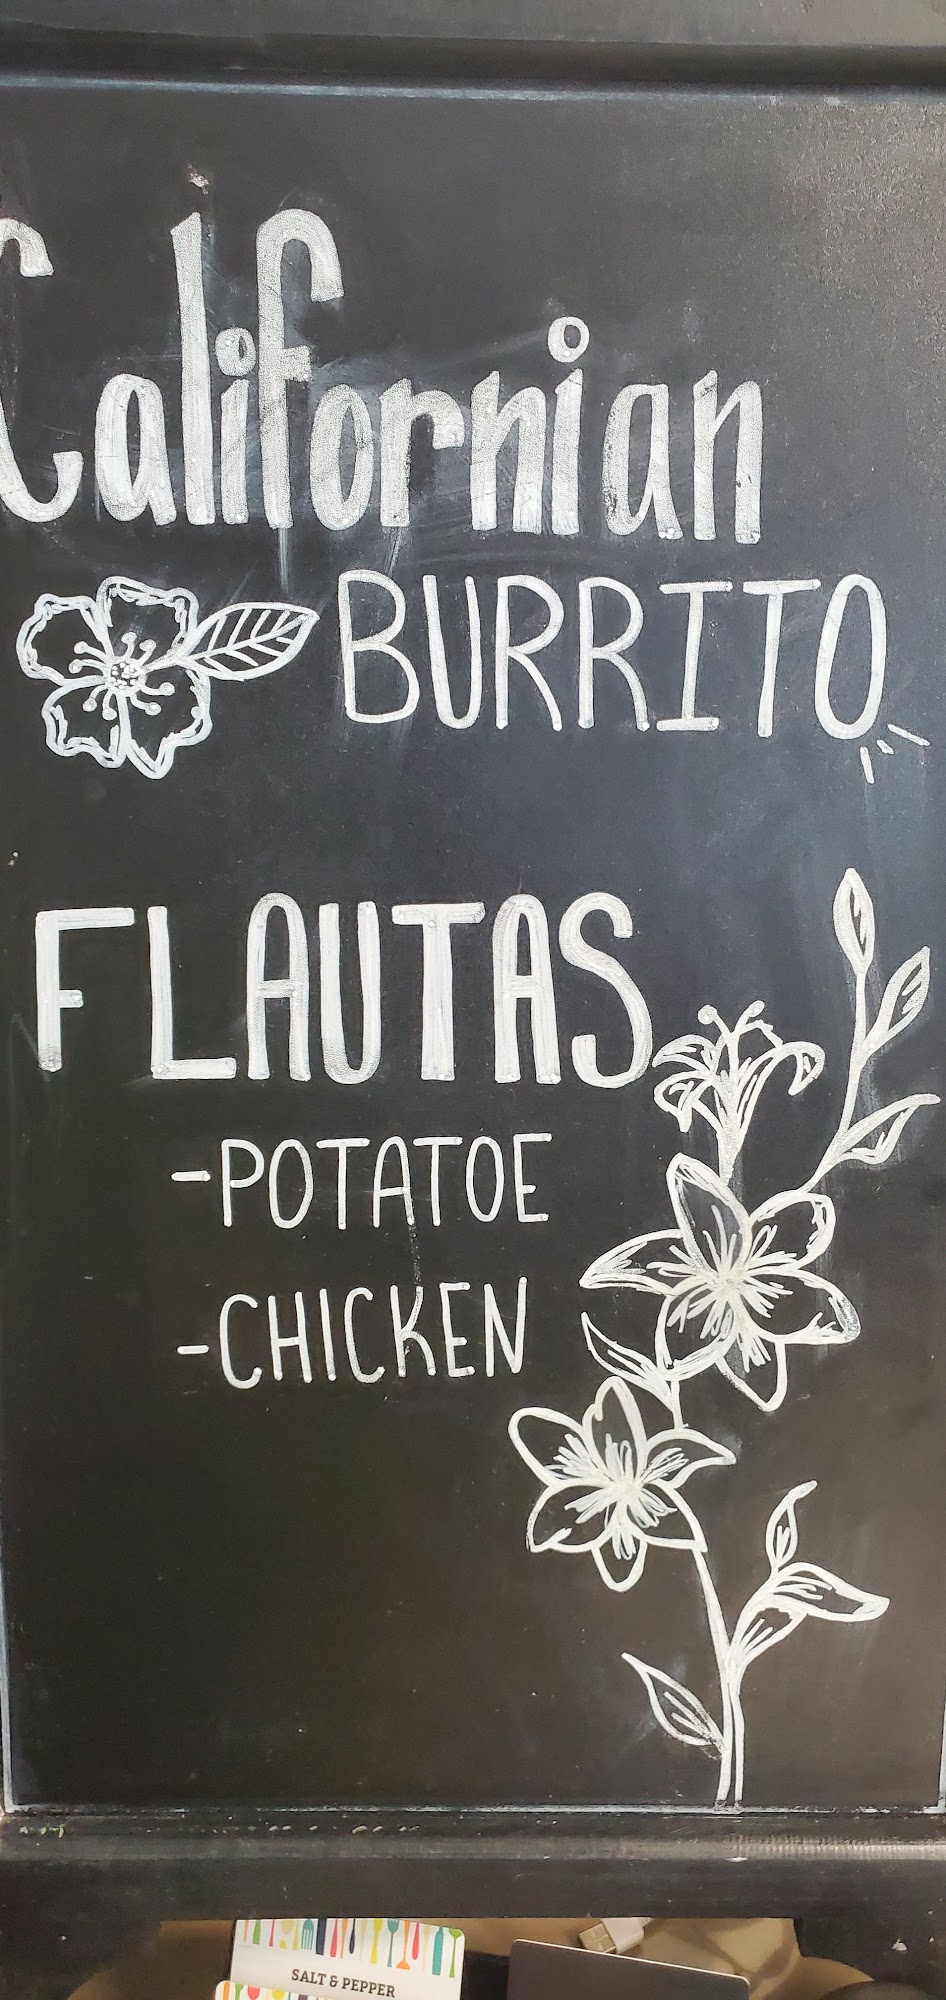 Californian
BURRITO
FLAUTAS
-POTATOE
-CHICKEN
SALT & PEPPER